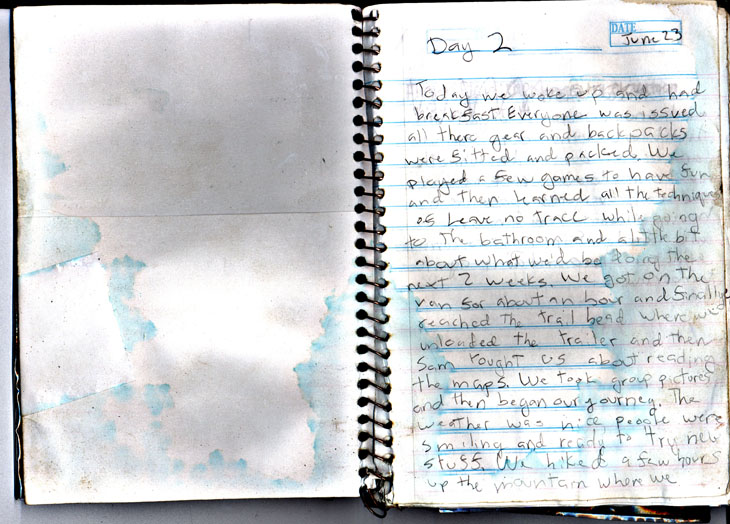 Day 2
DATE
June 23
Today we woke up and had
breakfast. Everyone was issued
all there gear and backpacks
were fitted and packed. We
played a few games to have fun
and then learned all the techniques
of Leave no trace while going
to the bathroom and a little bit
about what we'd be doing the
next 2 weeks. We got on the
van for about an hour and finallye
reached the trail head where we
unloaded the trailer and then
Sam tought us about reading
the maps. We took group pictures
and then began our journey. The
weather was nice, people were
smiling and ready to try new
stuff. We hiked a few hours
up the mountain where we